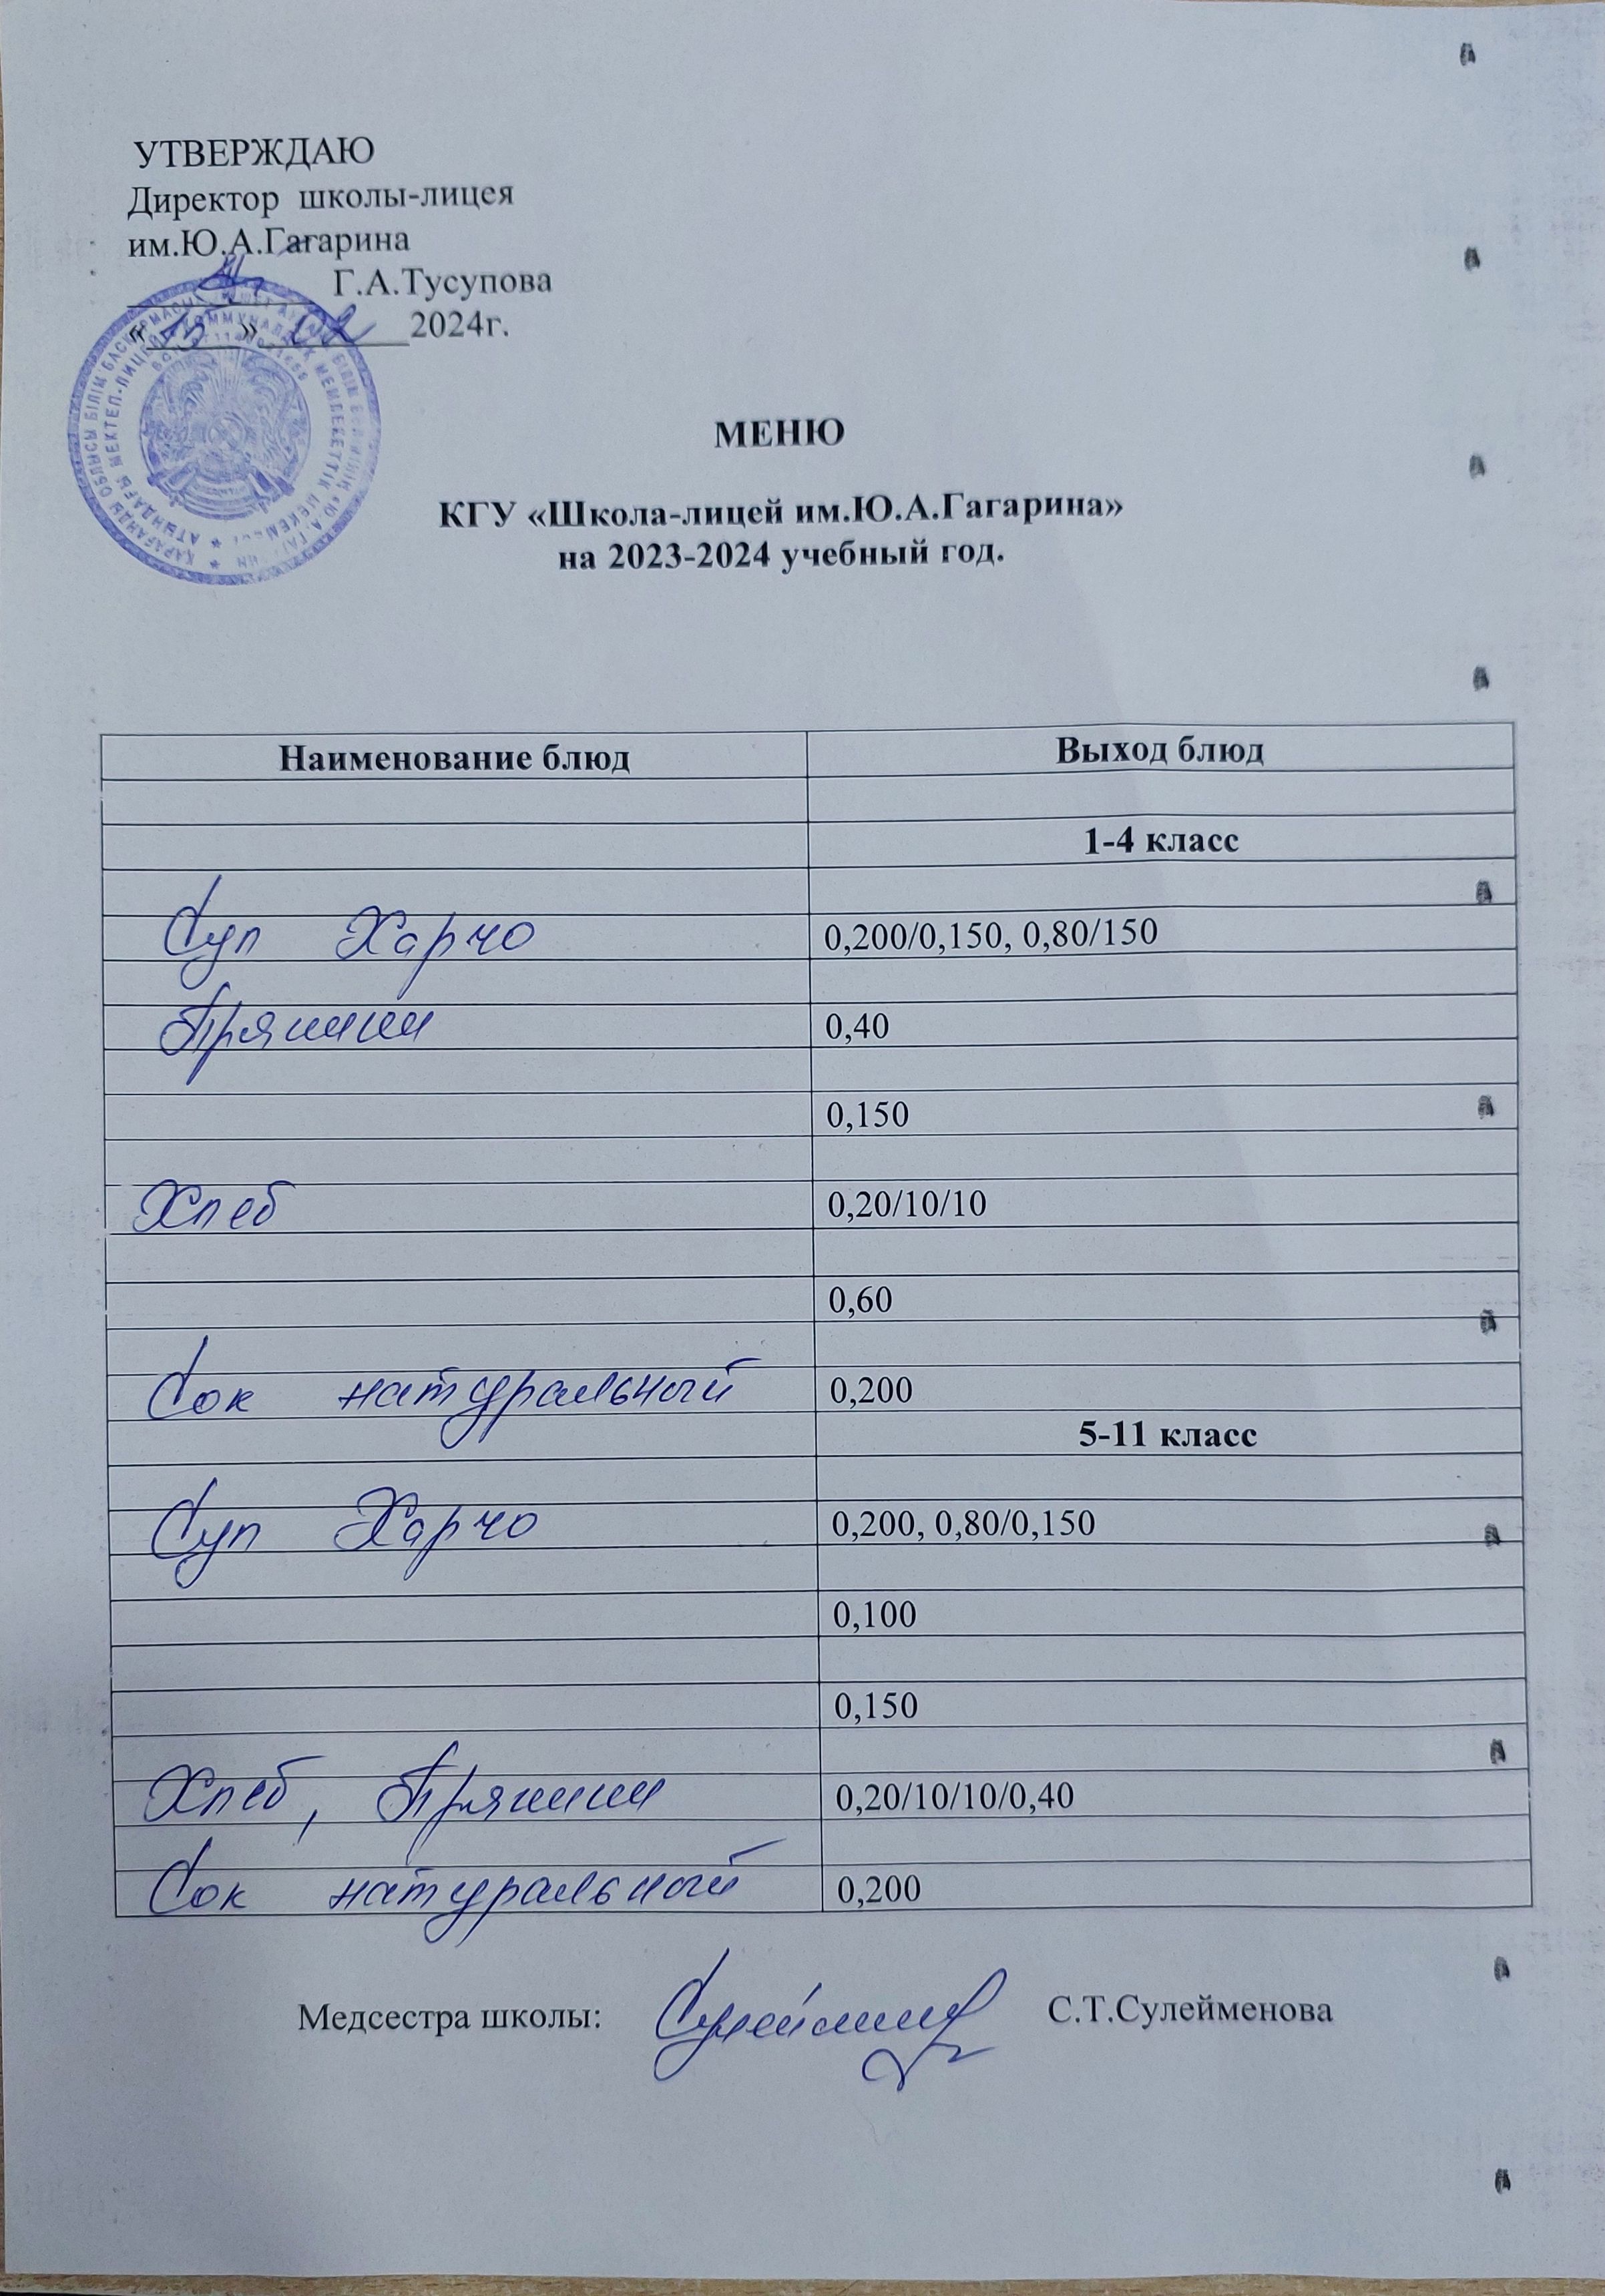 УТВЕРЖДАЮ
Директор школы-лицея
им.Ю.А.Гагарина
Г.А.Тусупова
«15» 02 2024г.
МЕНЮ
КГУ «Школа-лицей им.Ю.А.Гагарина»
на 2023-2024 учебный год.
Наименование блюд Выход блюд
1-4 класс
Суп Харчо 0,200/0,150, 0,80/150
Пряники 0,40
0,150
Хлеб 0,20/10/10
0,60
Сок натуральный 0,200
5-11 класс
Суп Харчо 0,200, 0,80/0,150
0,100
0,150
Хлеб, Пряники 0,20/10/10/0,40
Сок натуральный 0,200
Медсестра школы: С.Т.Сулейменова